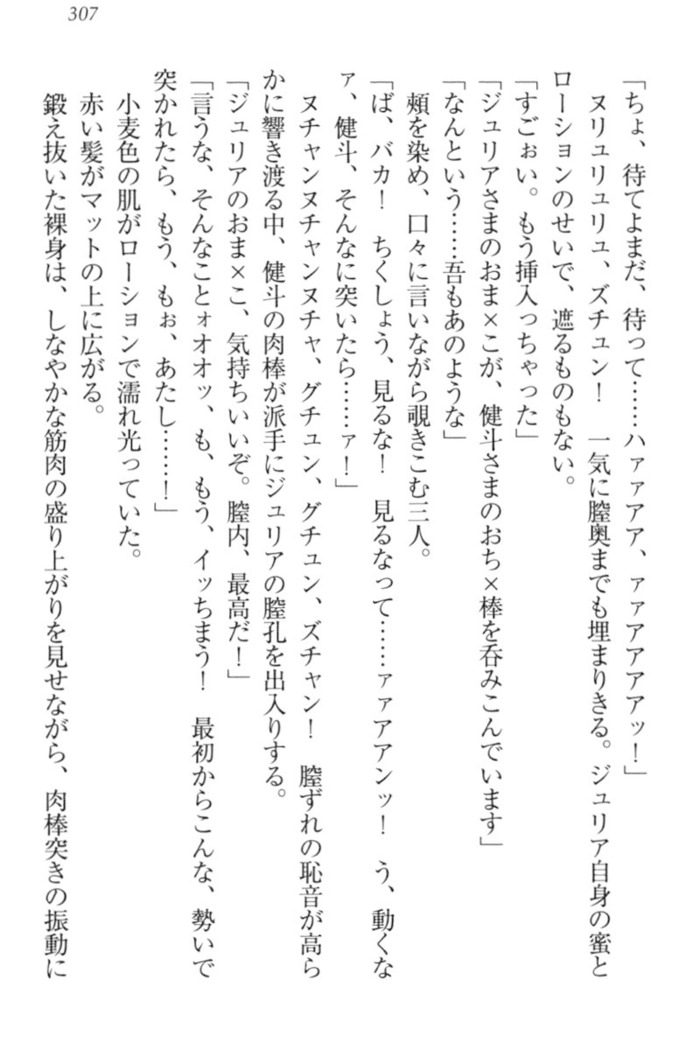 307
「ちょ、待てよまだ、待って……ハァァアア、ァァアアアアッ！」
ヌリュリュリュ、ズチュン！　一気に膣奥までも埋まりきる。ジュリア自身の蜜と
ローションのせいで、遮るものもない。
「すごぉい。もう挿入っちゃった」
「ジュリアさまのおま×こが、健斗さまのおち×棒を呑みこんでいます」
「なんという……吾もあのような」
頬を染め、口々に言いながら覗きこむ三人。
「ば、バカ！　ちくしょう、見るな！　見るなって……ァァアアンッ！　う、動くな
ァ、健斗、そんなに突いたら……ァ！」
ヌチャンヌチャンヌチャ、グチュン、グチュン、ズチャン！　膣ずれの恥音が高ら
かに響き渡る中、健斗の肉棒が派手にジュリアの膣孔を出入りする。
「ジュリアのおま×こ、気持ちいいぞ。膣内、最高だ！」
「言うな、そんなことォオオッ、も、もう、イッちまう！　最初からこんな、勢いで
突かれたら、もう、もぉ、あたし……！」
小麦色の肌がローションで濡れ光っていた。
赤い髪がマットの上に広がる。
鍛え抜いた裸身は、しなやかな筋肉の盛り上がりを見せながら、肉棒突きの振動に